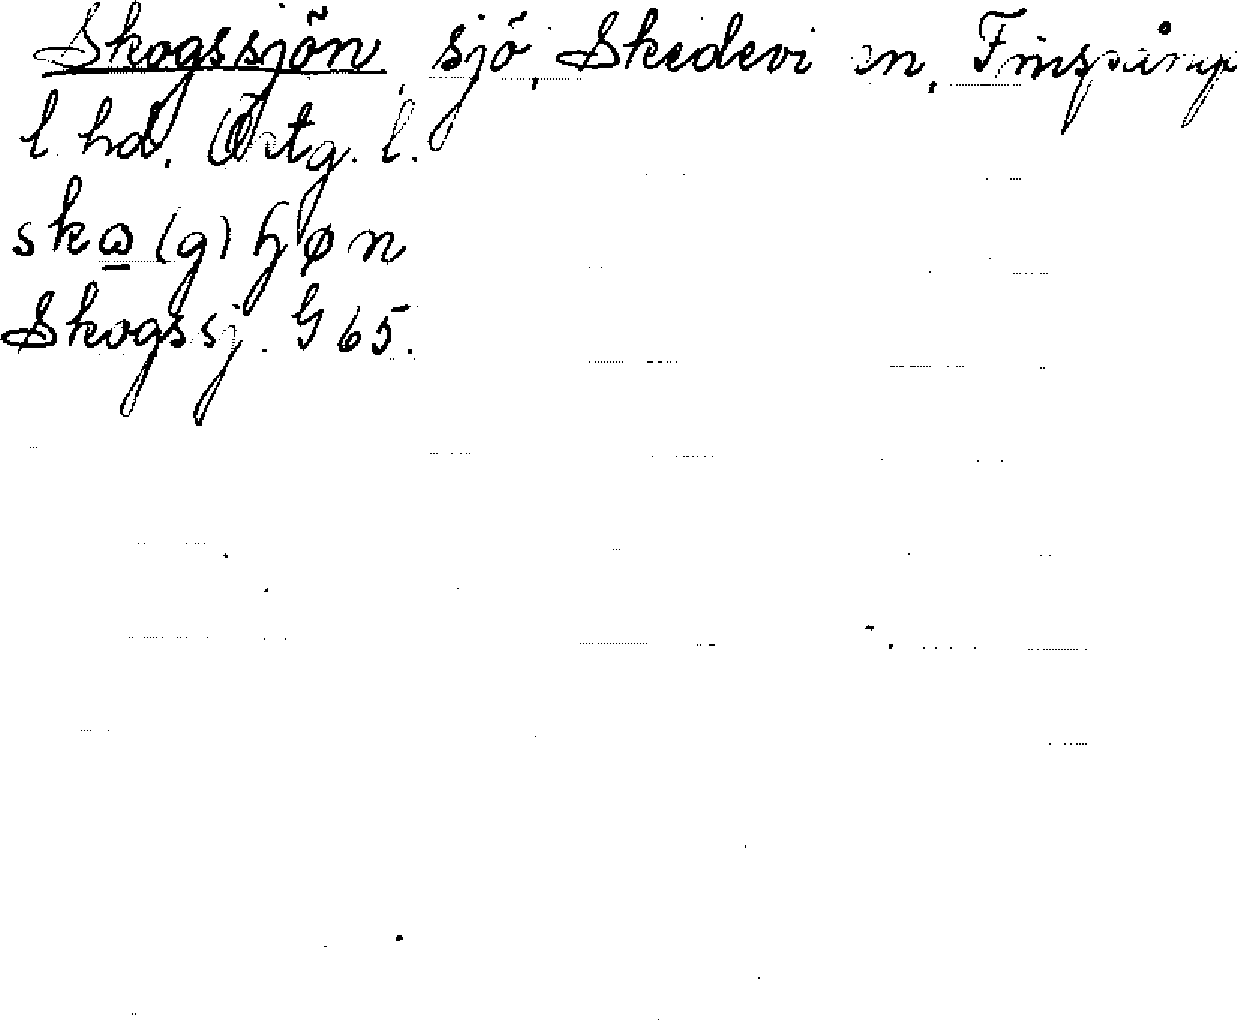 Skogssjön, sjö, Skedevi sn, Finspång
l. hd. Östg. l.
Skogssj. G 65.